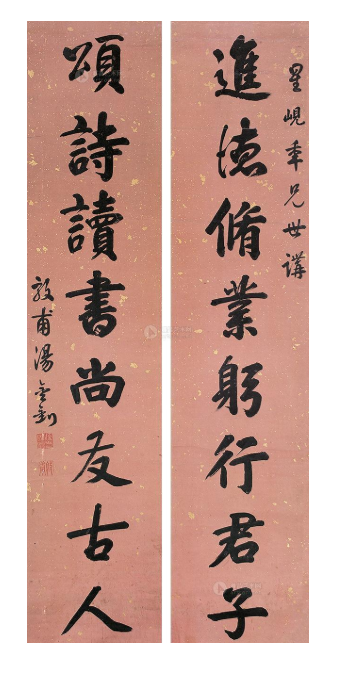 星峴年兄世講
進德脩業躬行君子
頌詩讀書尚友古人
敦甫湯金釗